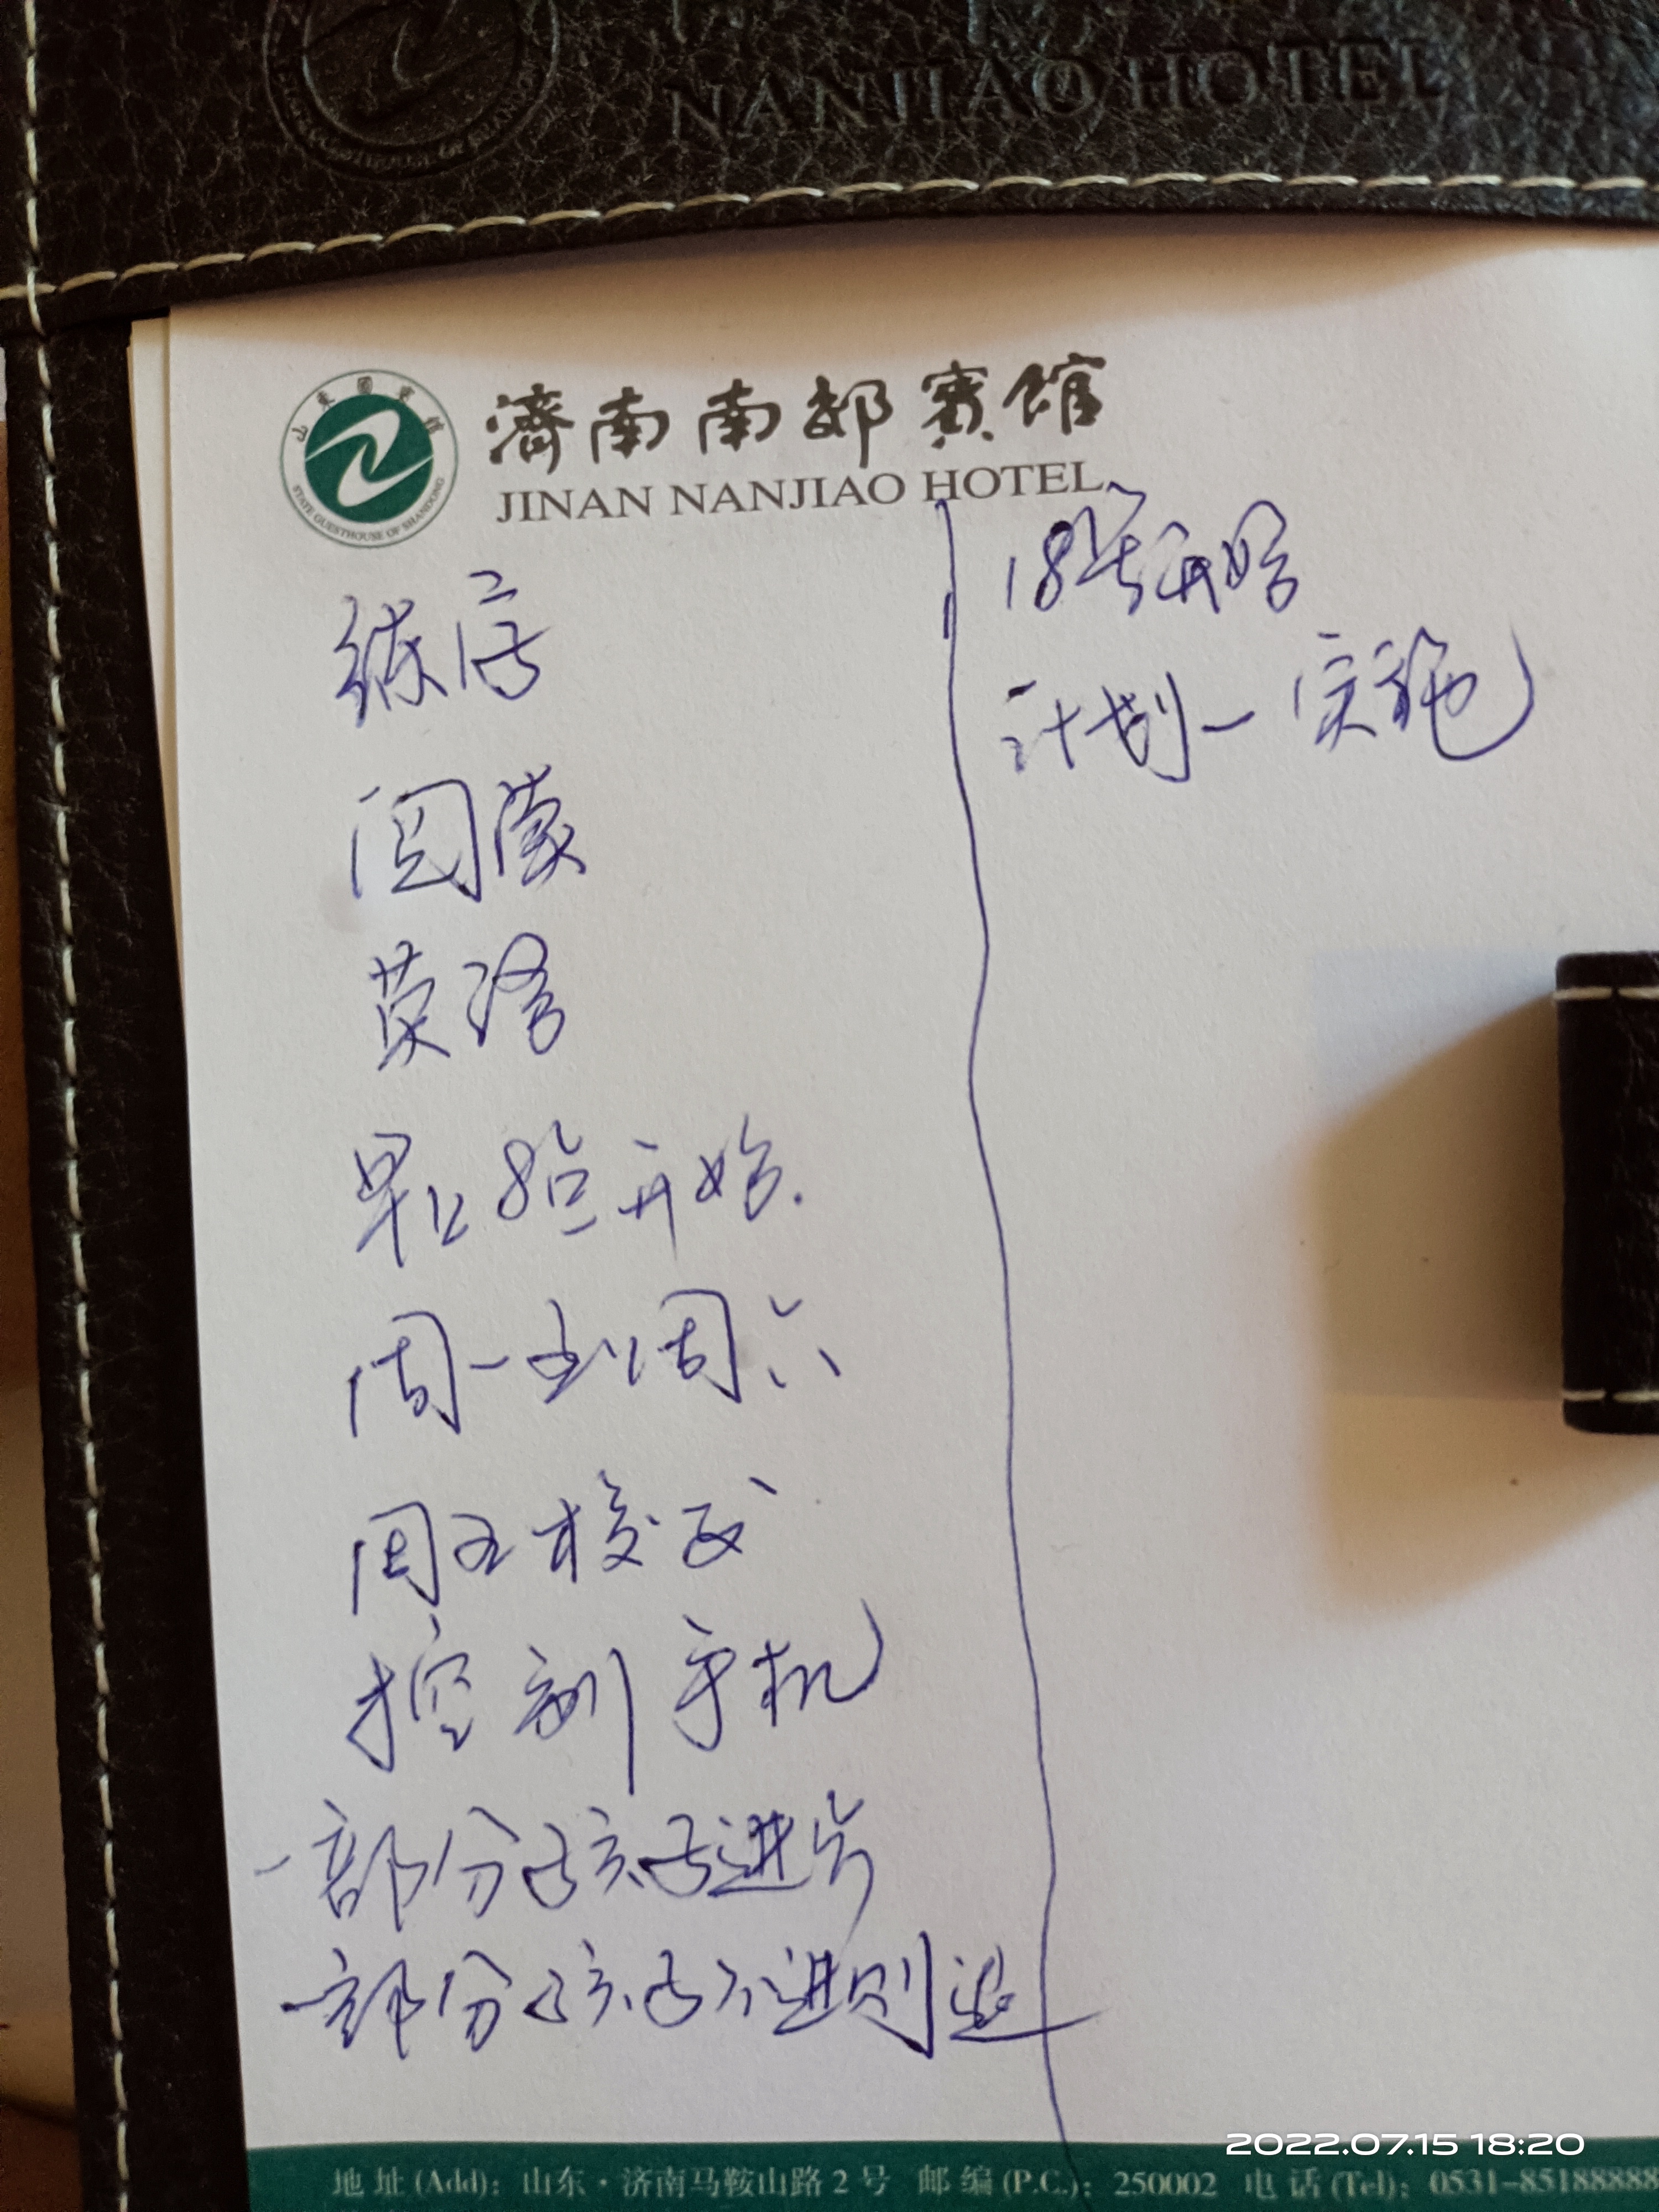 NANJIAO HOTEL
山东国宾馆
STATE GUESTHOUSE OF SHANDONG
濟南南郊賓館
JINAN NANJIAO HOTEL
练字
阅读
英语
早上8点开始.
周一到周六
周五校对
控制手机
一部分孩子进步
一部分孩子不进则退
18号开始
计划一实施
2022.07.15 18:20
地址(Add): 山东·济南马鞍山路2号 邮编(P.C.): 250002 电话(Tel): 0531-85188888